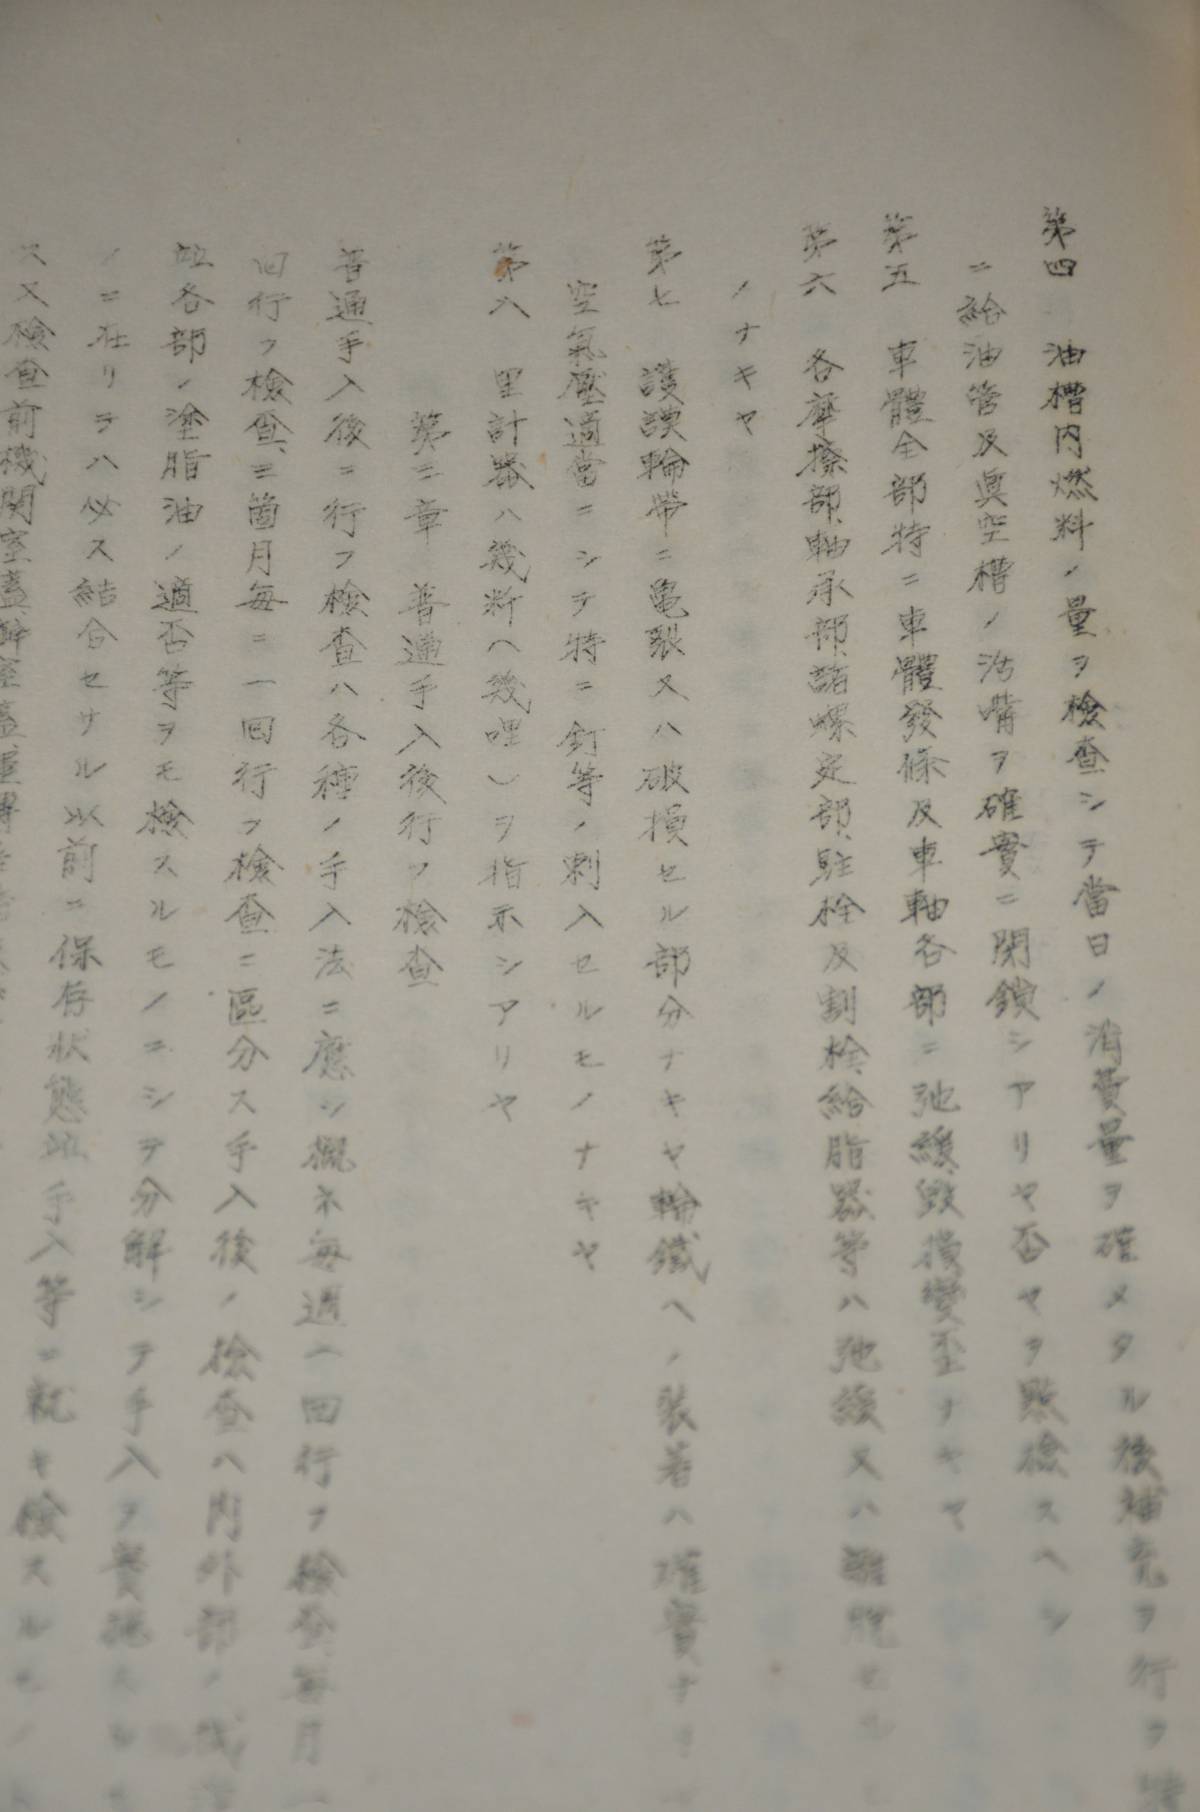 第四 油槽内燃料ノ量ヲ檢査シテ當日ノ消費量ヲ確メタル後補充ヲ行ヲ特
ニ給油管及眞空槽ノ活嘴ヲ確實ニ閉鎖シアリヤ否ヤヲ點檢スヘシ
第五 車體全部特ニ車體發條及車軸各部ニ弛緩、毀損變歪ナキヤ
第六 各摩擦部、軸承部、諸螺定部、駐栓及割栓、給脂器等ハ弛緩又ハ離脱セル
ノナキヤ
第七 護謨輪帶ニ亀裂又ハ破損セル部分ナキヤ輪鐵ヘノ裝着ハ確實ナリ
空氣壓適當ニシテ特ニ釘等ノ刺入セルモノナキヤ
第八 里計器ハ幾粁(幾哩)ヲ指示シアリヤ
第三章 普通手入後行フ檢査
普通手入後ニ行フ檢査ハ各種ノ手入法ニ應シ概ネ毎週一回行フ檢査、毎月一
回行フ檢査、三箇月毎ニ一回行フ檢査ニ區分ス手入後ノ檢査ハ内外部ノ
竝各部ノ塗脂油ノ適否等ヲモ檢スルモノニシテ分解シテ手入ヲ實施スル
ノニ在リテハ必ス結合セサル以前ニ保存狀態竝手入等ニ就キ檢スルモノ
ス又檢査前機関室蓋、